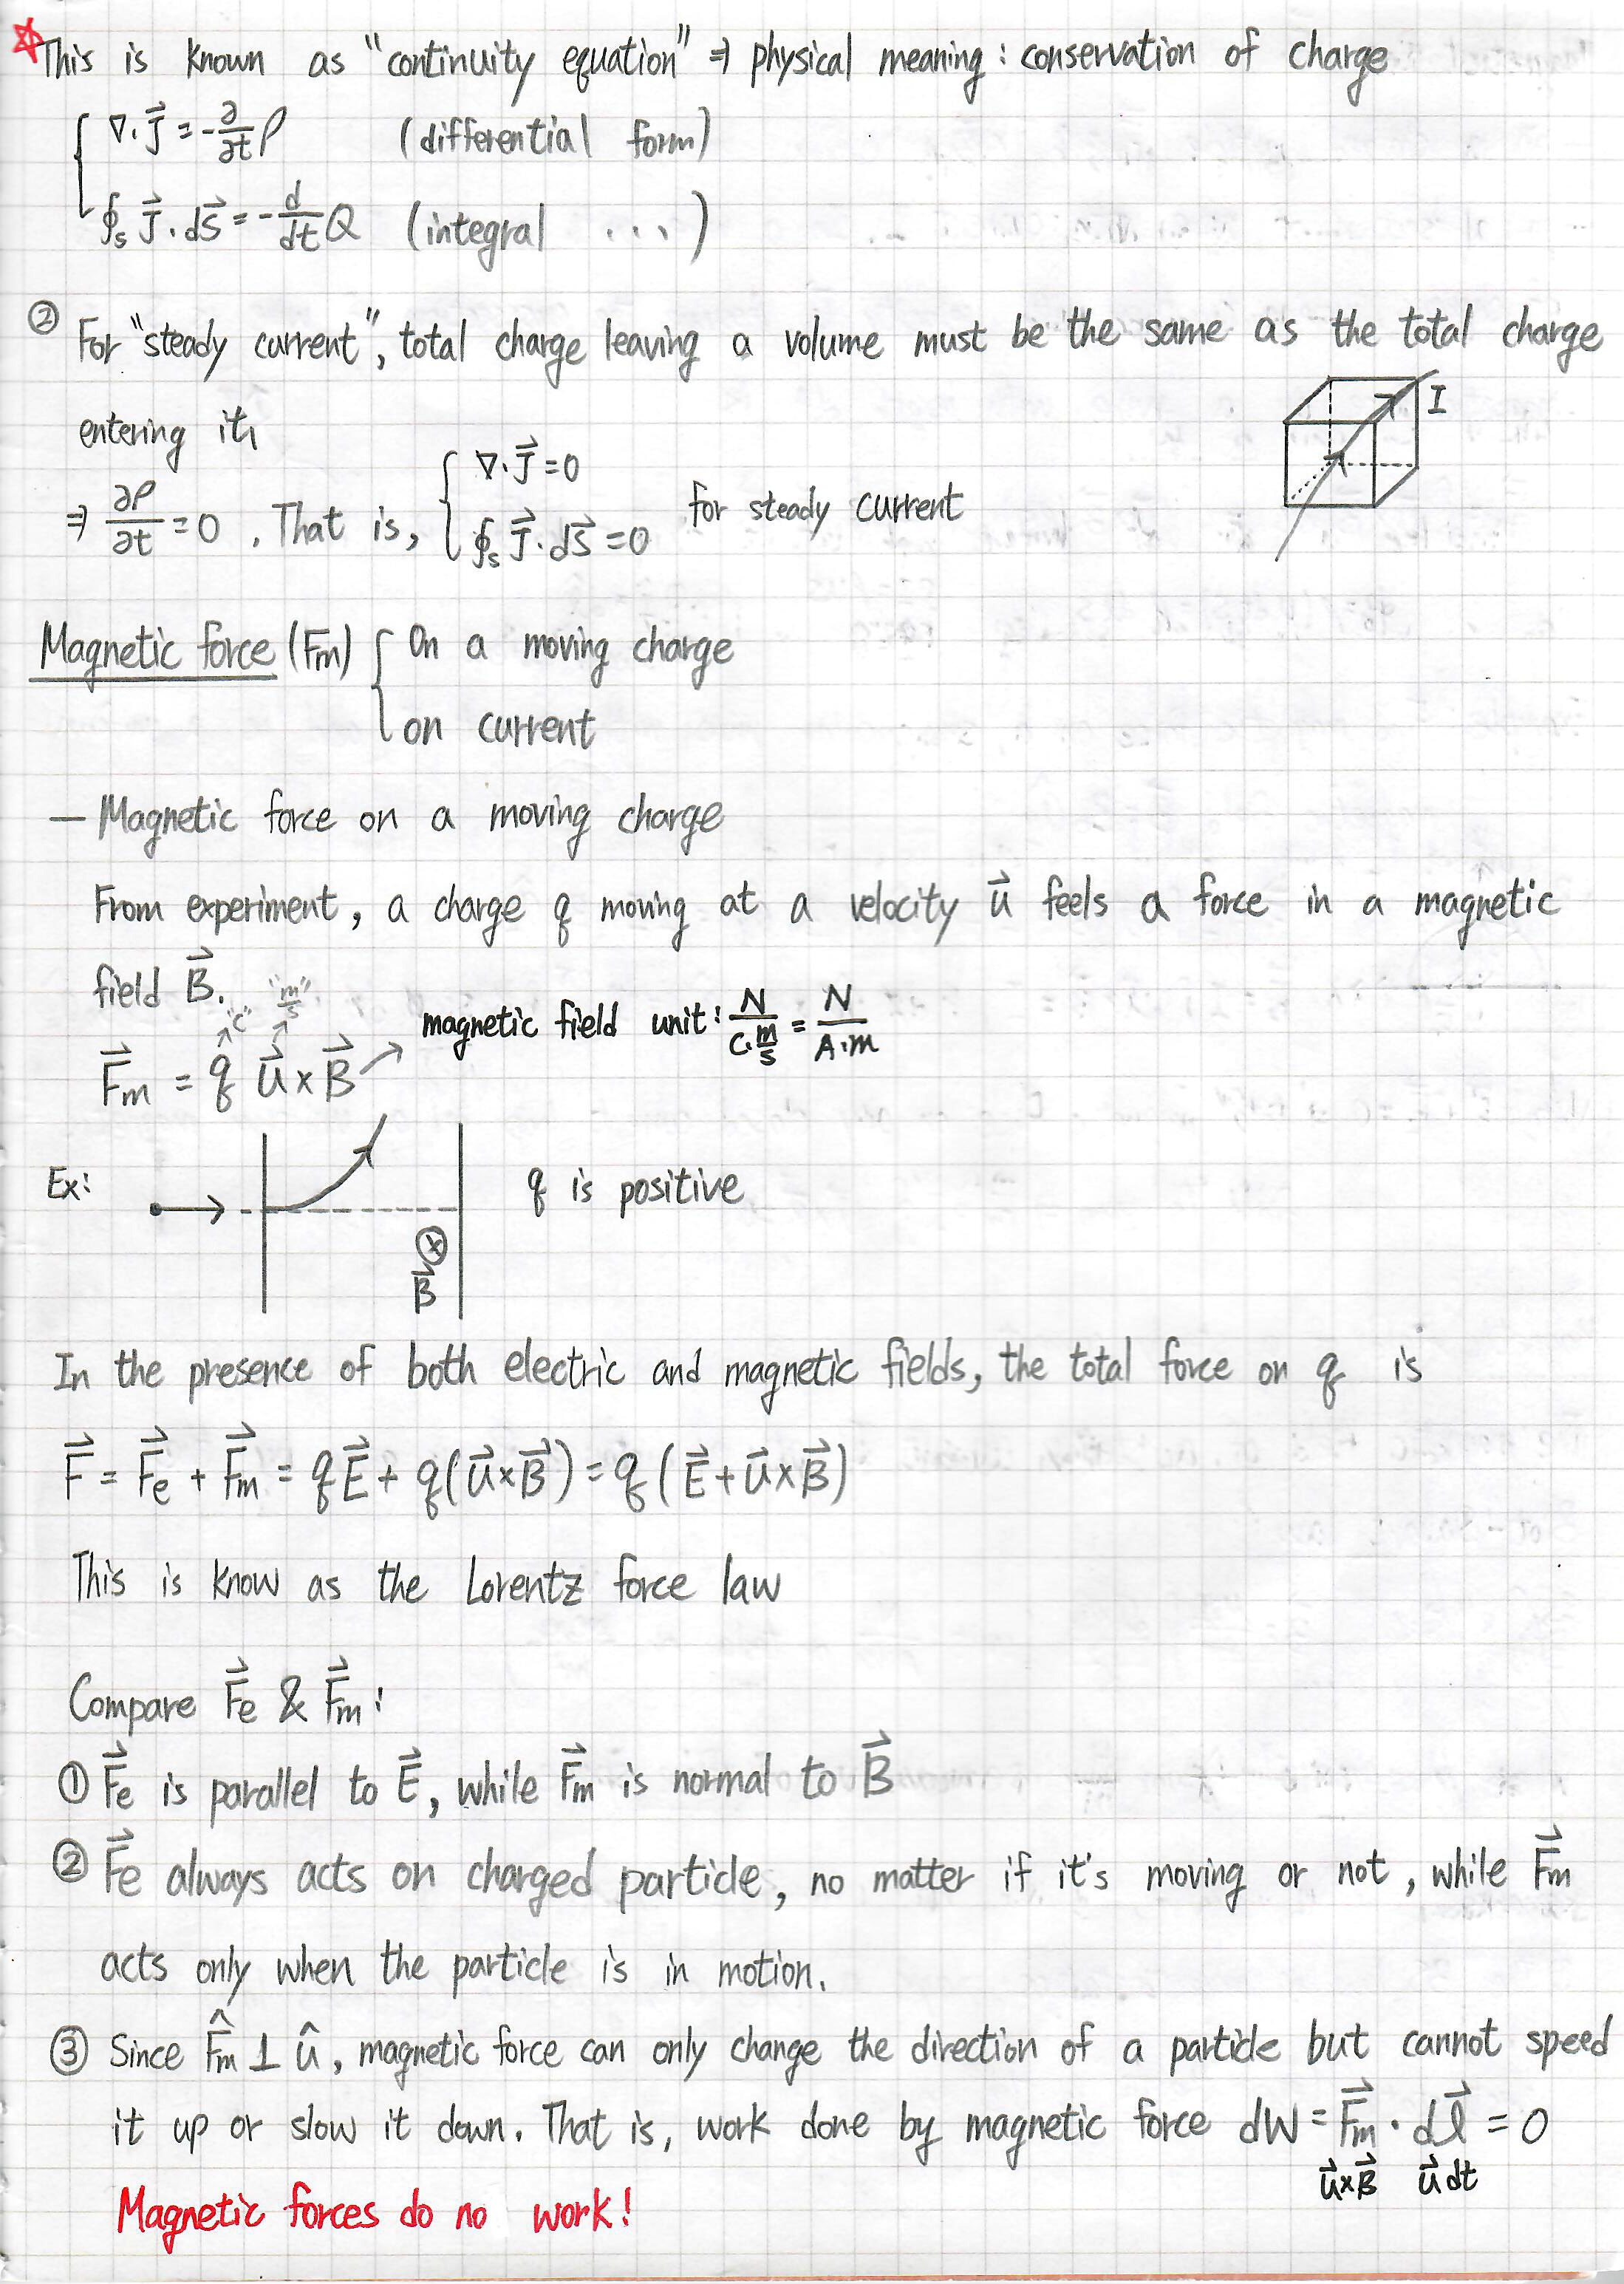 This is known as "continuity equation" ⇒ physical meaning : conservation of charge
∇·J⃗ = -∂/∂t ρ (differential form)
∮s J⃗·dS⃗ = -d/dt Q (integral ...)
② For "steady current", total charge leaving a volume must be the same as the total charge
entering it,
I
⇒ ∂ρ/∂t = 0 . That is, { ∇·J⃗ = 0
∮s J⃗·dS⃗ = 0 for steady current
Magnetic force (Fm) { On a moving charge
on current
— Magnetic force on a moving charge
From experiment, a charge q moving at a velocity u⃗ feels a force in a magnetic
field B⃗.
"C" "m/s"
magnetic field unit: N/(C·m/s) = N/(A·m)
F⃗m = q u⃗ × B⃗
Ex: q is positive
B⃗
In the presence of both electric and magnetic fields, the total force on q is
F⃗ = F⃗e + F⃗m = qE⃗ + q(u⃗×B⃗) = q(E⃗+u⃗×B⃗)
This is know as the Lorentz force law
Compare F⃗e & F⃗m :
① F⃗e is parallel to E⃗, while F⃗m is normal to B⃗
② F⃗e always acts on charged particle, no matter if it's moving or not, while F⃗m
acts only when the particle is in motion.
③ Since F̂m ⊥ û, magnetic force can only change the direction of a particle but cannot speed
it up or slow it down. That is, work done by magnetic force dW = F⃗m · dl⃗ = 0
u⃗×B⃗ u⃗dt
Magnetic forces do no work!